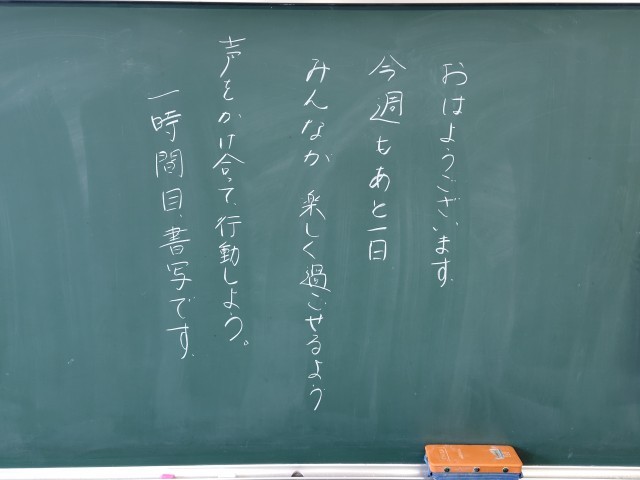 おはようございます.
今週もあと一日
みんなが 楽しく過ごせるよう
声をかけ合って、行動しよう。
一時間目、書写です.